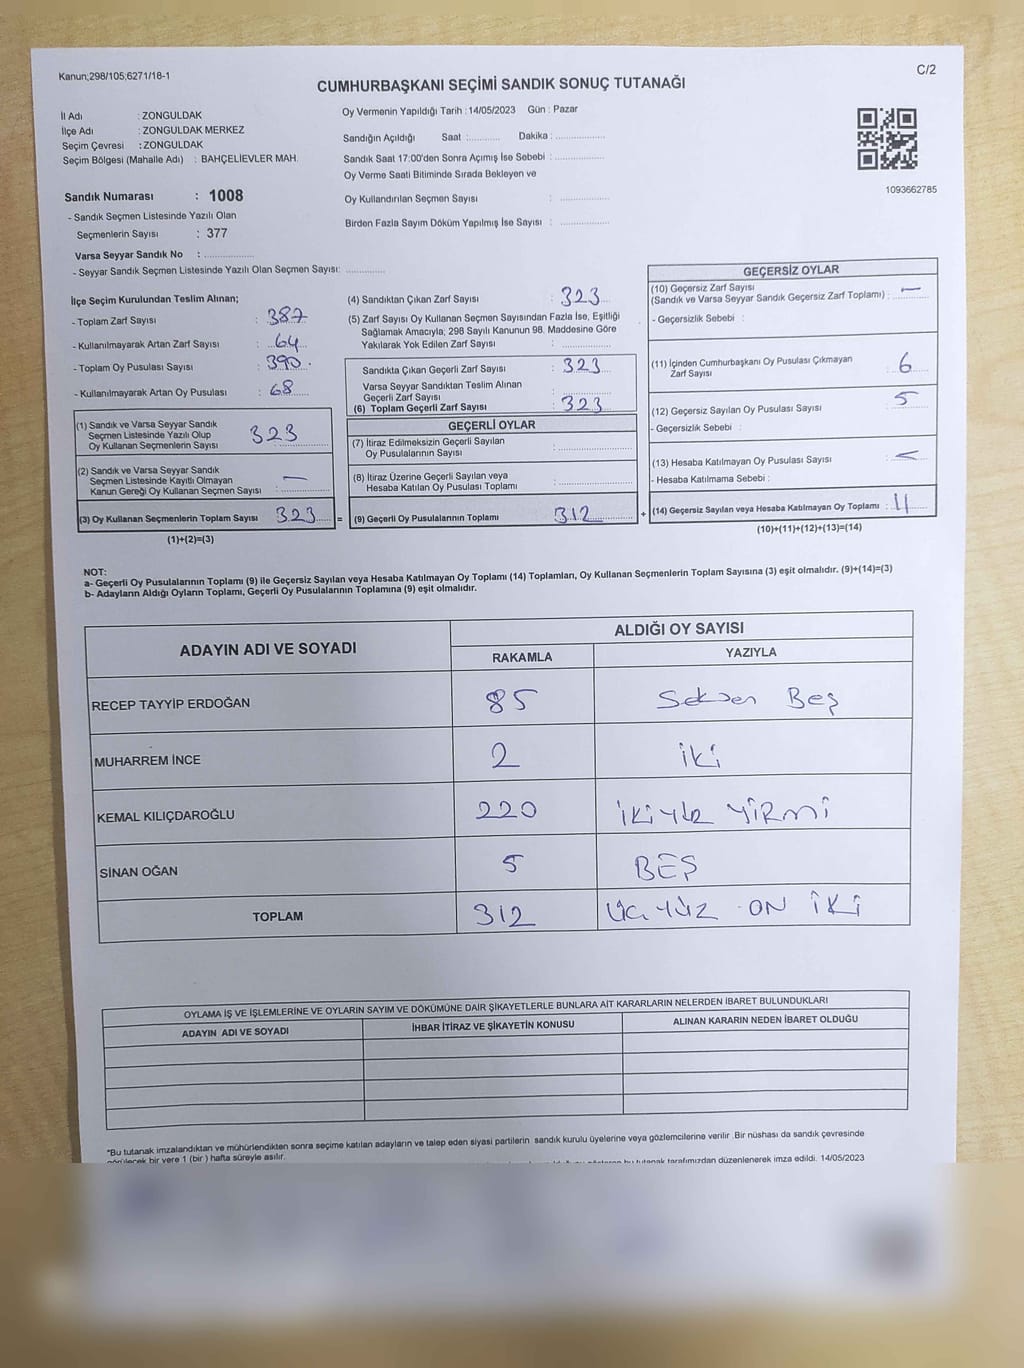 Kanun;298/105;6271/18-1
C/2
CUMHURBAŞKANI SEÇİMİ SANDIK SONUÇ TUTANAĞI
İl Adı : ZONGULDAK
İlçe Adı : ZONGULDAK MERKEZ
Seçim Çevresi : ZONGULDAK
Seçim Bölgesi (Mahalle Adı) : BAHÇELİEVLER MAH.
Sandık Numarası : 1008
- Sandık Seçmen Listesinde Yazılı Olan
Seçmenlerin Sayısı : 377
Varsa Seyyar Sandık No : ..............
- Seyyar Sandık Seçmen Listesinde Yazılı Olan Seçmen Sayısı: ............
Oy Vermenin Yapıldığı Tarih : 14/05/2023 Gün : Pazar
Sandığın Açıldığı Saat :.......... Dakika : ................
Sandık Saat 17:00'den Sonra Açımış İse Sebebi : ................
Oy Verme Saati Bitiminde Sırada Bekleyen ve
Oy Kullandırılan Seçmen Sayısı : ................
Birden Fazla Sayım Döküm Yapılmış İse Sayısı : ................
1093662785
İlçe Seçim Kurulundan Teslim Alınan;
- Toplam Zarf Sayısı : 387
- Kullanılmayarak Artan Zarf Sayısı : 64
- Toplam Oy Pusulası Sayısı : 390
- Kullanılmayarak Artan Oy Pusulası : 68
(1) Sandık ve Varsa Seyyar Sandık
Seçmen Listesinde Yazılı Olup
Oy Kullanan Seçmenlerin Sayısı : 323
(2) Sandık ve Varsa Seyyar Sandık
Seçmen Listesinde Kayıtlı Olmayan
Kanun Gereği Oy Kullanan Seçmen Sayısı : —
(3) Oy Kullanan Seçmenlerin Toplam Sayısı : 323
(1)+(2)=(3)
(4) Sandıktan Çıkan Zarf Sayısı : 323
(5) Zarf Sayısı Oy Kullanan Seçmen Sayısından Fazla İse, Eşitliği
Sağlamak Amacıyla; 298 Sayılı Kanunun 98. Maddesine Göre
Yakılarak Yok Edilen Zarf Sayısı : ..............
Sandıkta Çıkan Geçerli Zarf Sayısı : 323
Varsa Seyyar Sandıktan Teslim Alınan
Geçerli Zarf Sayısı : ..............
(6) Toplam Geçerli Zarf Sayısı : 323
GEÇERLİ OYLAR
(7) İtiraz Edilmeksizin Geçerli Sayılan
Oy Pusulalarının Sayısı : ..............
(8) İtiraz Üzerine Geçerli Sayılan veya
Hesaba Katılan Oy Pusulası Toplamı : ..............
= (9) Geçerli Oy Pusulalarının Toplamı : 312
GEÇERSİZ OYLAR
(10) Geçersiz Zarf Sayısı
(Sandık ve Varsa Seyyar Sandık Geçersiz Zarf Toplamı) : —
- Geçersizlik Sebebi :
(11) İçinden Cumhurbaşkanı Oy Pusulası Çıkmayan
Zarf Sayısı : 6
(12) Geçersiz Sayılan Oy Pusulası Sayısı : 5
- Geçersizlik Sebebi :
(13) Hesaba Katılmayan Oy Pusulası Sayısı : —
- Hesaba Katılmama Sebebi :
+ (14) Geçersiz Sayılan veya Hesaba Katılmayan Oy Toplamı : 11
(10)+(11)+(12)+(13)=(14)
NOT:
a- Geçerli Oy Pusulalarının Toplamı (9) ile Geçersiz Sayılan veya Hesaba Katılmayan Oy Toplamı (14) Toplamları, Oy Kullanan Seçmenlerin Toplam Sayısına (3) eşit olmalıdır. (9)+(14)=(3)
b- Adayların Aldığı Oyların Toplamı, Geçerli Oy Pusulalarının Toplamına (9) eşit olmalıdır.
ADAYIN ADI VE SOYADI ALDIĞI OY SAYISI
RAKAMLA YAZIYLA
RECEP TAYYİP ERDOĞAN 85 Seksen Beş
MUHARREM İNCE 2 iki
KEMAL KILIÇDAROĞLU 220 İKİYÜZ YİRMİ
SİNAN OĞAN 5 BEŞ
TOPLAM 312 ÜÇYÜZ ON İKİ
OYLAMA İŞ VE İŞLEMLERİNE VE OYLARIN SAYIM VE DÖKÜMÜNE DAİR ŞİKAYETLERLE BUNLARA AİT KARARLARIN NELERDEN İBARET BULUNDUKLARI
ADAYIN ADI VE SOYADI İHBAR İTİRAZ VE ŞİKAYETİN KONUSU ALINAN KARARIN NEDEN İBARET OLDUĞU
*Bu tutanak imzalandıktan ve mühürlendikten sonra seçime katılan adayların ve talep eden siyasi partilerin sandık kurulu üyelerine veya gözlemcilerine verilir .Bir nüshası da sandık çevresinde
görülecek bir yere 1 (bir ) hafta süreyle asılır.
bu tutanak tarafımızdan düzenlenerek imza edildi. 14/05/2023